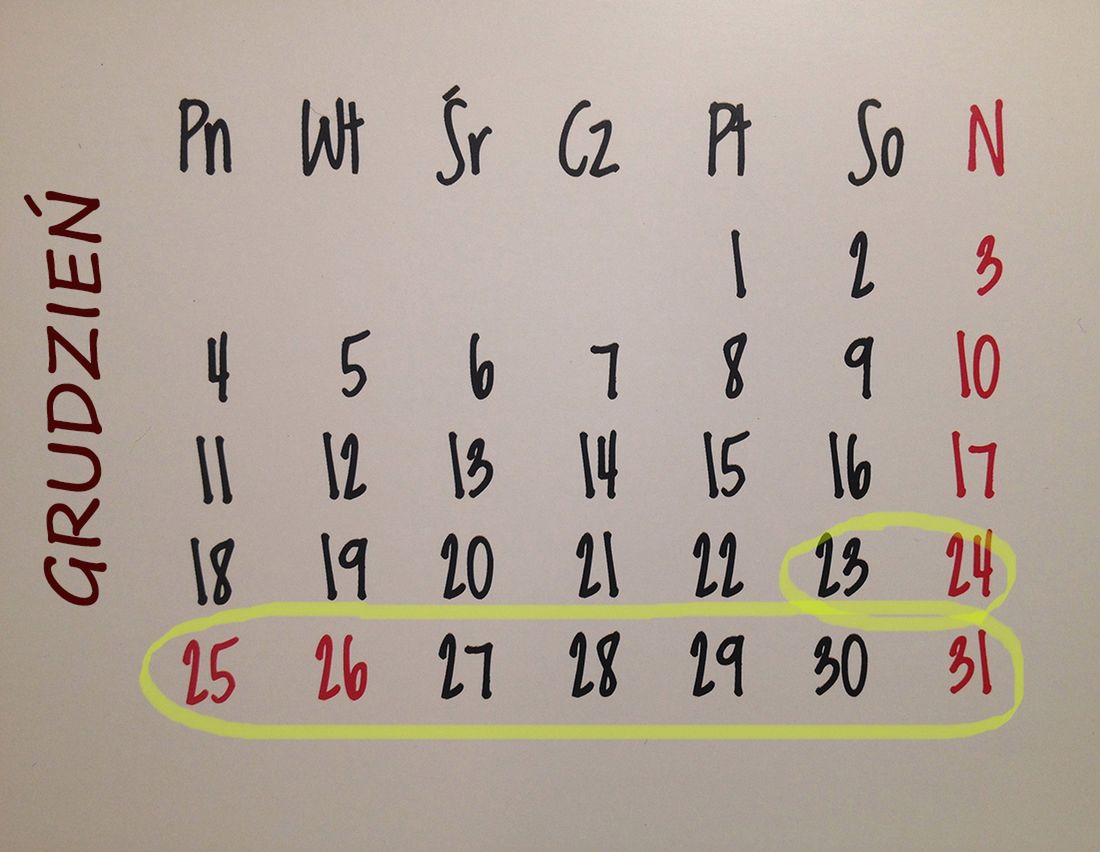 GRUDZIEŃ
Pn Wt Śr Cz Pt So N
1 2 3
4 5 6 7 8 9 10
11 12 13 14 15 16 17
18 19 20 21 22 23 24
25 26 27 28 29 30 31